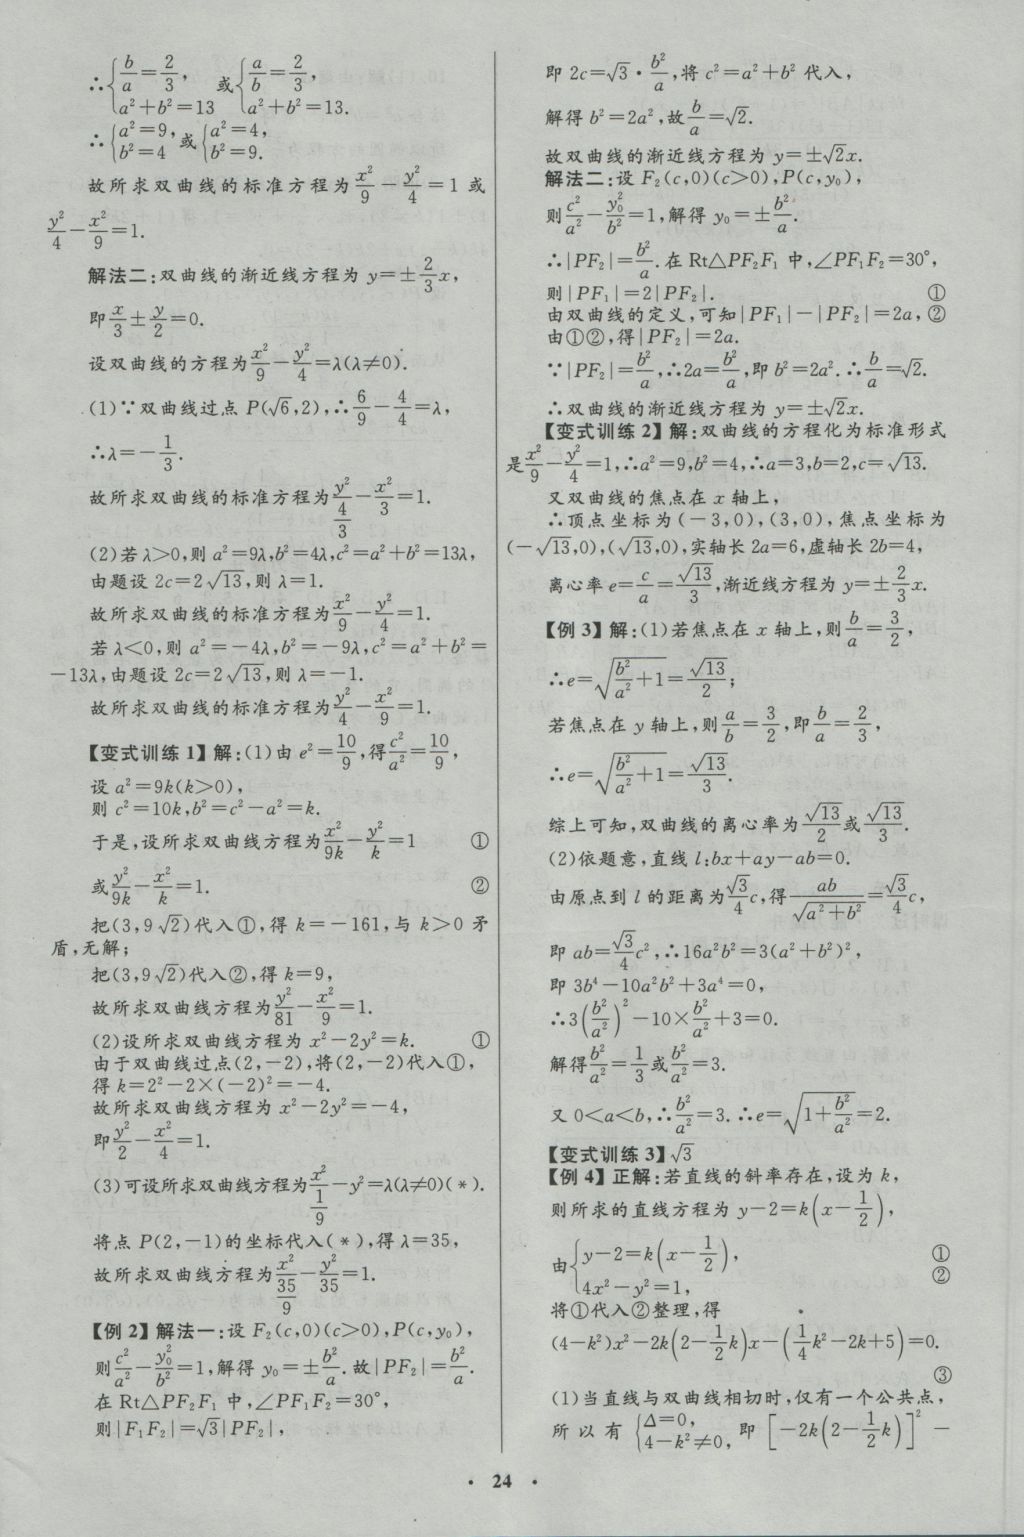 ∴{b/a=2/3, a²+b²=13 或{a/b=2/3, a²+b²=13.
∴{a²=9, b²=4 或{a²=4, b²=9.
故所求双曲线的标准方程为x²/9-y²/4=1 或
y²/4-x²/9=1.
解法二:双曲线的渐近线方程为 y=±2/3x,
即x/3±y/2=0.
设双曲线的方程为x²/9-y²/4=λ(λ≠0).
(1)∵双曲线过点 P(√6,2),∴6/9-4/4=λ,
∴λ=-1/3.
故所求双曲线的标准方程为y²/(4/3)-x²/3=1.
(2)若 λ>0,则 a²=9λ,b²=4λ,c²=a²+b²=13λ,
由题设 2c=2√13,则 λ=1.
故所求双曲线的标准方程为x²/9-y²/4=1.
若 λ<0,则 a²=-4λ,b²=-9λ,c²=a²+b²=
-13λ,由题设 2c=2√13,则 λ=-1.
故所求双曲线的标准方程为y²/4-x²/9=1.
【变式训练 1】解:(1)由 e²=10/9,得c²/a²=10/9,
设 a²=9k(k>0),
则 c²=10k,b²=c²-a²=k.
于是,设所求双曲线方程为x²/9k-y²/k=1 ①
或y²/9k-x²/k=1. ②
把(3,9√2)代入①,得 k=-161,与 k>0 矛
盾,无解;
把(3,9√2)代入②,得 k=9,
故所求双曲线方程为y²/81-x²/9=1.
(2)设所求双曲线方程为 x²-2y²=k. ①
由于双曲线过点(2,-2),将(2,-2)代入①,
得 k=2²-2×(-2)²=-4.
故所求双曲线方程为 x²-2y²=-4,
即y²/2-x²/4=1.
(3)可设所求双曲线方程为x²/(1/9)-y²=λ(λ≠0)(*).
将点 P(2,-1)的坐标代入(*),得 λ=35,
故所求双曲线方程为x²/(35/9)-y²/35=1.
【例 2】解法一:设 F₂(c,0)(c>0),P(c,y₀),
则c²/a²-y₀²/b²=1,解得 y₀=±b²/a.故|PF₂|=b²/a.
在 Rt△PF₂F₁ 中,∠PF₁F₂=30°,
则|F₁F₂|=√3|PF₂|,
即 2c=√3·b²/a,将 c²=a²+b² 代入,
解得 b²=2a²,故b/a=√2.
故双曲线的渐近线方程为 y=±√2x.
解法二:设 F₂(c,0)(c>0),P(c,y₀),
则c²/a²-y₀²/b²=1,解得 y₀=±b²/a.
∴|PF₂|=b²/a.在 Rt△PF₂F₁ 中,∠PF₁F₂=30°,
则|PF₁|=2|PF₂|. ①
由双曲线的定义,可知|PF₁|-|PF₂|=2a, ②
由①②,得|PF₂|=2a.
∵|PF₂|=b²/a,∴2a=b²/a,即 b²=2a².∴b/a=√2.
∴双曲线的渐近线方程为 y=±√2x.
【变式训练 2】解:双曲线的方程化为标准形式
是x²/9-y²/4=1,∴a²=9,b²=4,∴a=3,b=2,c=√13.
又双曲线的焦点在 x 轴上,
∴顶点坐标为(-3,0),(3,0),焦点坐标为
(-√13,0),(√13,0),实轴长 2a=6,虚轴长 2b=4,
离心率 e=c/a=√13/3,渐近线方程为 y=±2/3x.
【例 3】解:(1)若焦点在 x 轴上,则b/a=3/2,
∴e=√(b²/a²+1)=√13/2;
若焦点在 y 轴上,则a/b=3/2,即b/a=2/3,
∴e=√(b²/a²+1)=√13/3.
综上可知,双曲线的离心率为√13/2或√13/3.
(2)依题意,直线 l:bx+ay-ab=0.
由原点到 l 的距离为√3/4c,得ab/√(a²+b²)=√3/4c,
即 ab=√3/4c²,∴16a²b²=3(a²+b²)²,
即 3b⁴-10a²b²+3a⁴=0,
∴3(b²/a²)²-10×b²/a²+3=0.
解得b²/a²=1/3或b²/a²=3.
又 0<a<b,∴b²/a²=3.∴e=√(1+b²/a²)=2.
【变式训练 3】√3
【例 4】正解:若直线的斜率存在,设为 k,
则所求的直线方程为 y-2=k(x-1/2),
由{y-2=k(x-1/2), ①
4x²-y²=1, ②
将①代入②整理,得
(4-k²)x²-2k(2-1/2k)x-(1/4k²-2k+5)=0.
③
(1)当直线与双曲线相切时,仅有一个公共点,
所以有{Δ=0, 4-k²≠0, 即[-2k(2-1/2k)]²-
· 24 ·